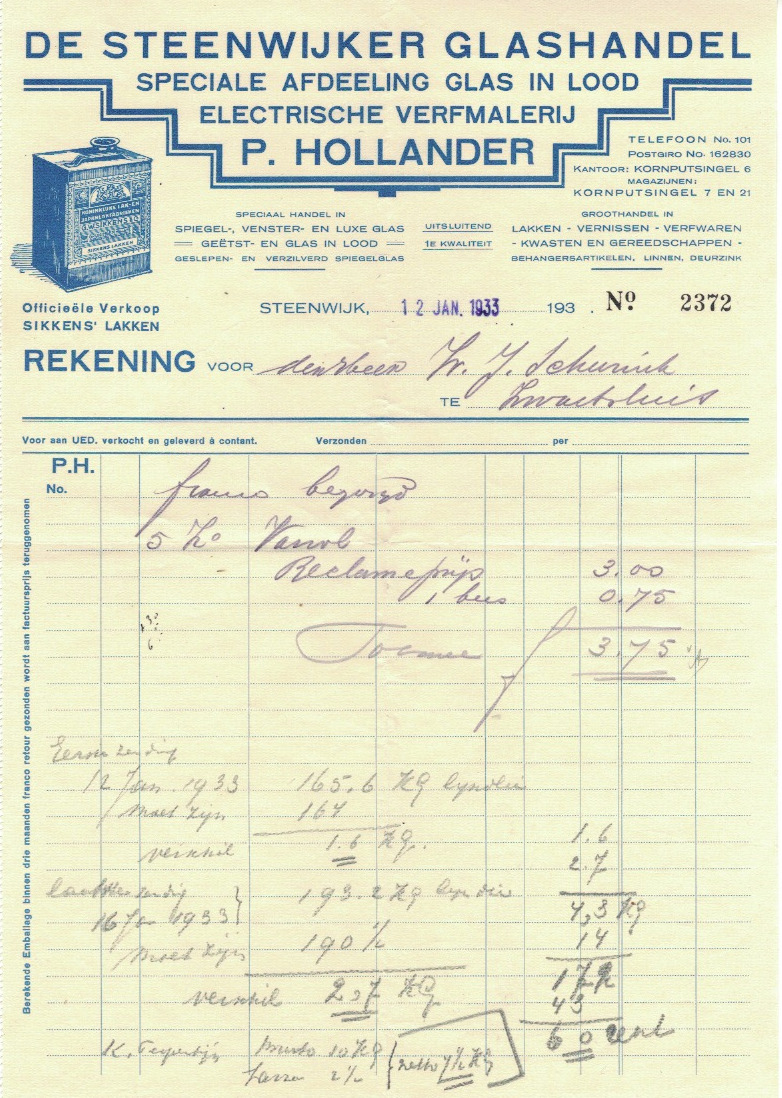 DE STEENWIJKER GLASHANDEL
SPECIALE AFDEELING GLAS IN LOOD
ELECTRISCHE VERFMALERIJ
P. HOLLANDER
TELEFOON No. 101
POSTGIRO No. 162830
KANTOOR: KORNPUTSINGEL 6
MAGAZIJNEN:
KORNPUTSINGEL 7 EN 21
SIKKENS LAKKEN
SPECIAAL HANDEL IN
SPIEGEL-, VENSTER- EN LUXE GLAS
GEËTST- EN GLAS IN LOOD
GESLEPEN- EN VERZILVERD SPIEGELGLAS
UITSLUITEND
1E KWALITEIT
GROOTHANDEL IN
LAKKEN - VERNISSEN - VERFWAREN
- KWASTEN EN GEREEDSCHAPPEN -
BEHANGERSARTIKELEN, LINNEN, DEURZINK
Officieële Verkoop
SIKKENS' LAKKEN
STEENWIJK, 12 JAN. 1933 193 . No 2372
REKENING VOOR den heer W. J. Schurink
TE Zwartsluis
Voor aan UED. verkocht en geleverd à contant. Verzonden per
P.H.
No.
franco bezorgd
5 Ko
Reclameprijs 3.00
1 bus 0.75
3.75
Eerste zending
12 Jan. 1933 165.6 KG lijnolie
moet zijn 164
verschil 1.6 KG.
1.6
2.7
laatste zending 193.2 KG lijnolie
4,3 Kg
16 Jan 1933
14
moet zijn 190½
172
verschil 2,7 KG
43
60 cent
K. Terpentijn Bruto 10 KG
Tarra 2½
netto 7½ KG
Berekende Emballage binnen drie maanden franco retour gezonden wordt aan factuursprijs teruggenomen